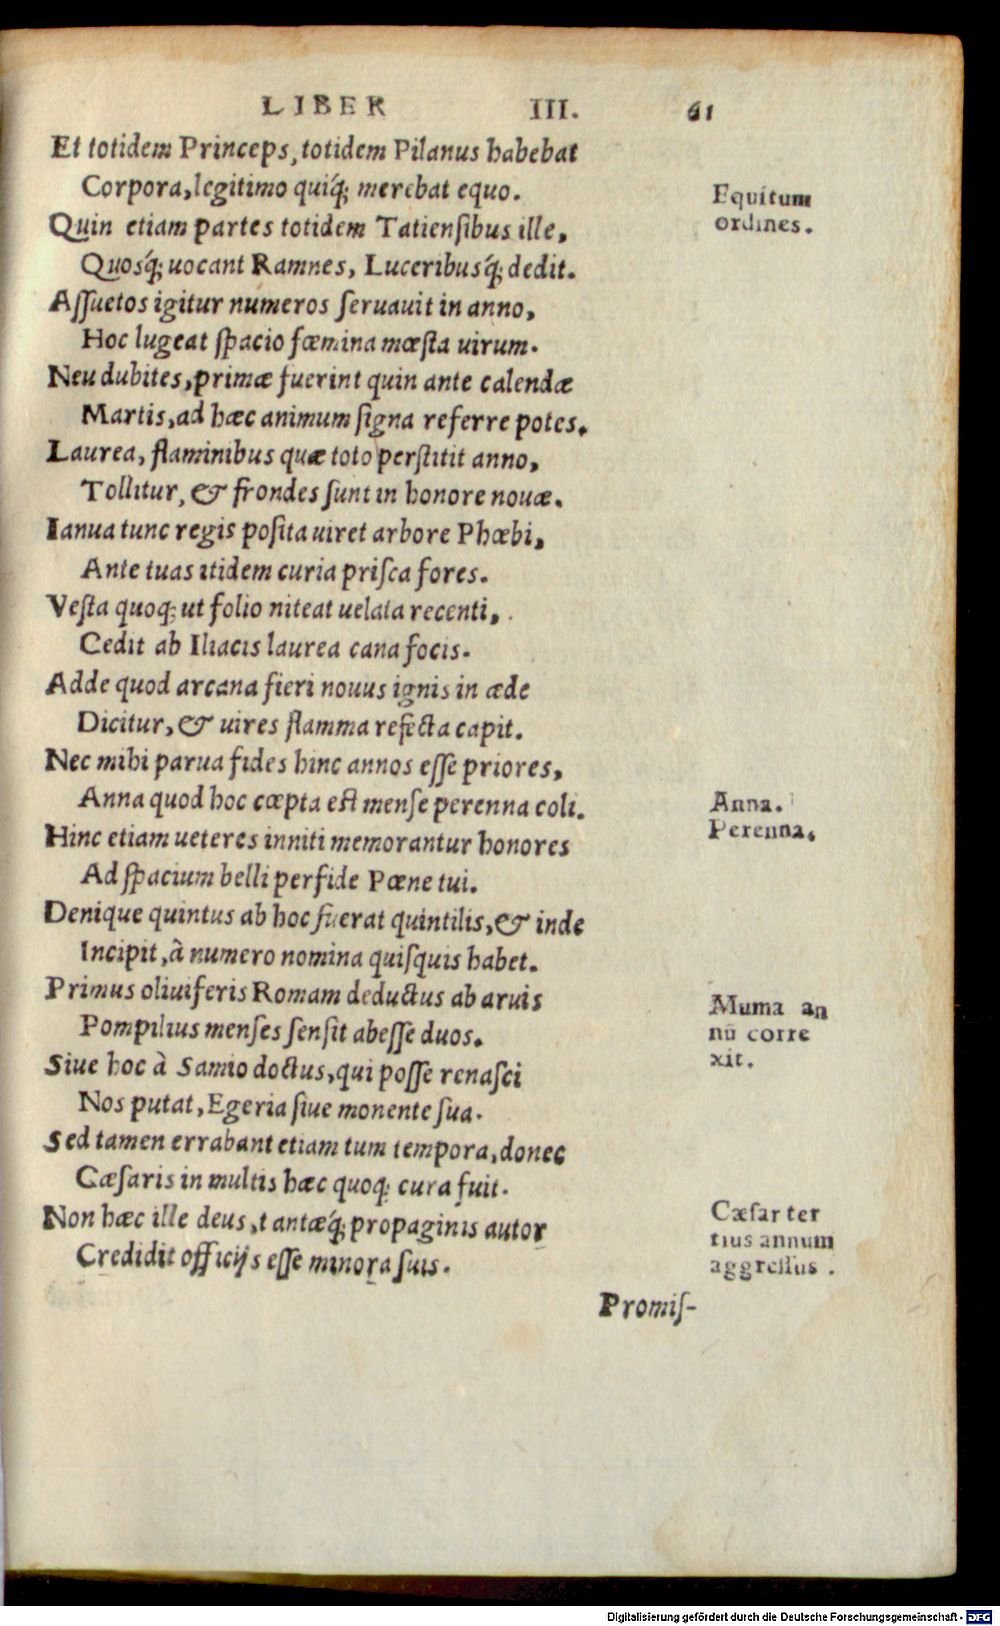 LIBER III. 61
Et totidem Princeps, totidem Pilanus habebat
Corpora, legitimo quiq́; merebat equo.
Equitum
ordines.
Quin etiam partes totidem Tatiensibus ille,
Quosq́; uocant Ramnes, Luceribusq́; dedit.
Assuetos igitur numeros seruauit in anno,
Hoc lugeat spacio fœmina mœsta uirum.
Neu dubites, primæ fuerint quin ante calendæ
Martis, ad hæc animum signa referre potes.
Laurea, flaminibus quæ toto perstitit anno,
Tollitur, & frondes sunt in honore nouæ.
Ianua tunc regis posita uiret arbore Phœbi,
Ante tuas itidem curia prisca fores.
Vesta quoq; ut folio niteat uelata recenti,
Cedit ab Iliacis laurea cana focis.
Adde quod arcana fieri nouus ignis in æde
Dicitur, & uires flamma refecta capit.
Nec mihi parua fides hinc annos esse priores,
Anna quod hoc cœpta est mense perenna coli.
Anna.
Perenna.
Hinc etiam ueteres inniti memorantur honores
Ad spacium belli perfide Pœne tui.
Denique quintus ab hoc fuerat quintilis, & inde
Incipit, à numero nomina quisquis habet.
Primus oliuiferis Romam deductus ab aruis
Pompilius menses sensit abesse duos.
Muma an
nū corre
xit.
Siue hoc à Samio doctus, qui posse renasci
Nos putat, Egeria siue monente sua.
Sed tamen errabant etiam tum tempora, donec
Cæsaris in multis hæc quoq; cura fuit.
Non hæc ille deus, tantæq́; propaginis autor
Credidit officijs esse minora suis.
Cæsar ter
tius annum
aggressus.
Promis-
Digitalisierung gefördert durch die Deutsche Forschungsgemeinschaft - DFG